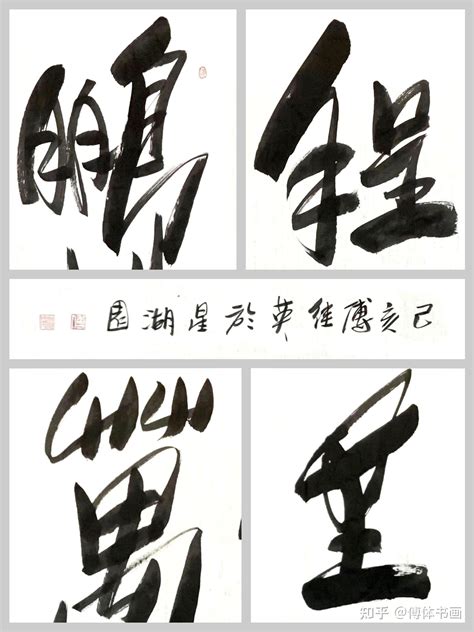 鵬程
己亥傅維英於星湖園
萬里
知乎 @傅体书画